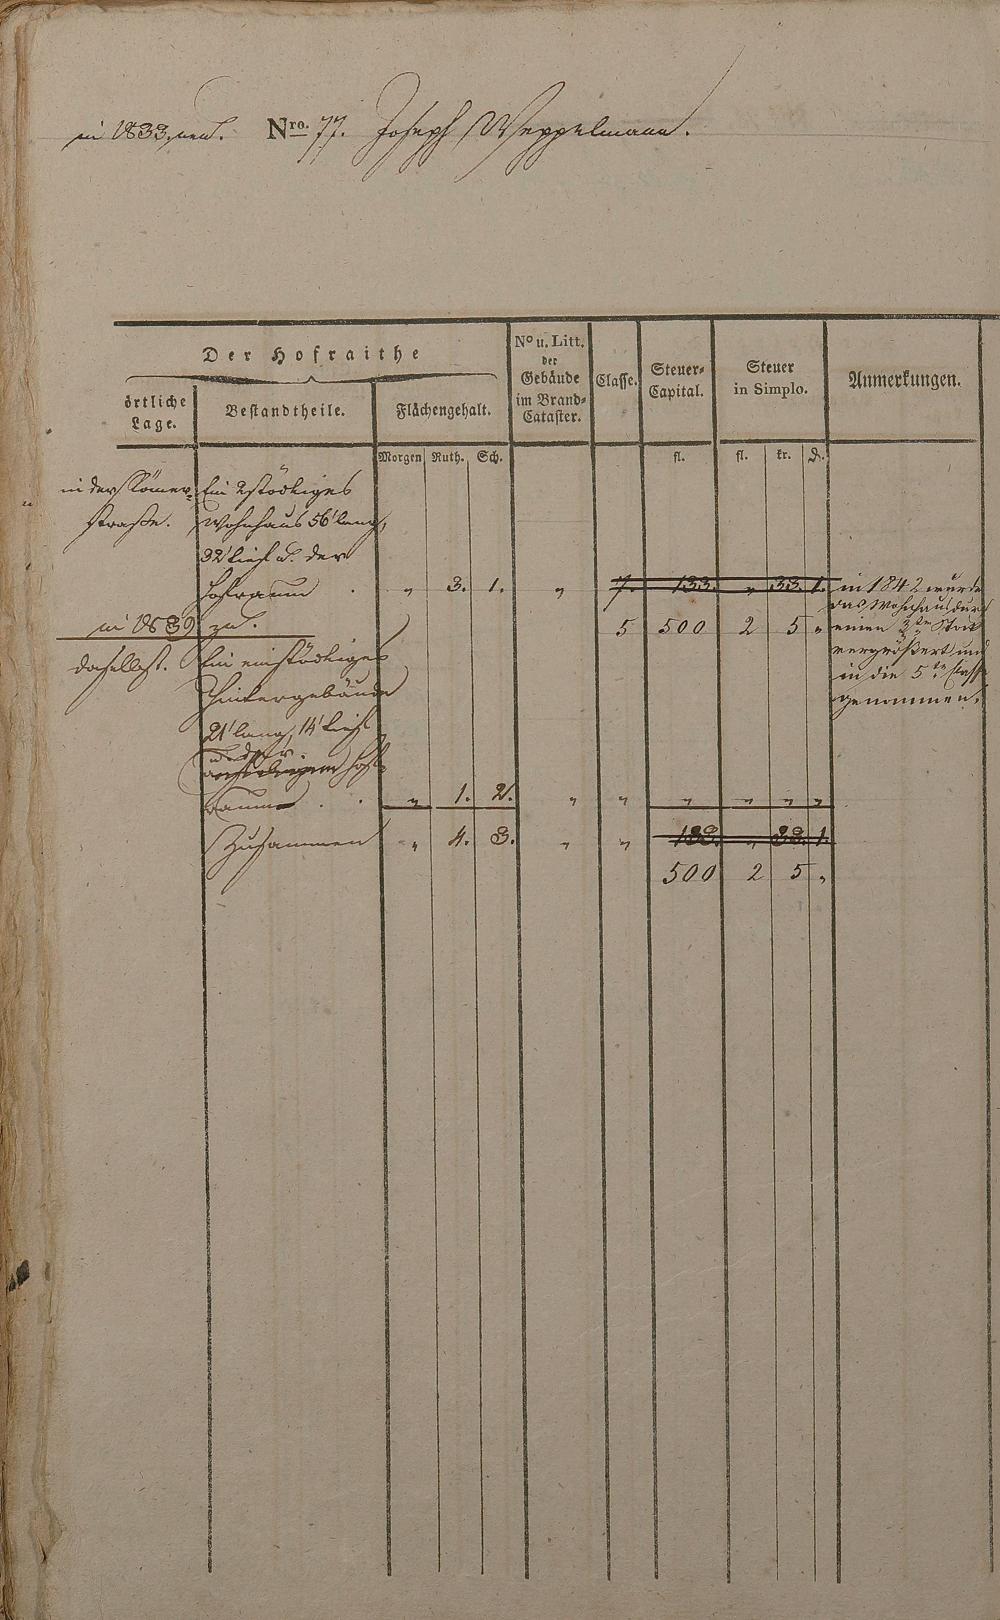 in 1833 neu. Nro. 77. Joseph Weppelmann.
Der Hofraithe
örtliche Lage.
Bestandtheile.
Flächengehalt.
No u. Litt. der Gebäude im Brand-Cataster.
Classe.
Steuer-Capital.
Steuer in Simplo.
Anmerkungen.
Morgen Ruth. Sch. fl. fl. kr. d.
in der Römer- Ein 2stöckiges
straße. Wohnhaus 56' lang,
32' tief u. der
Hofraum . „ 3. 1. „ 7. 133. „ 33. 1. in 1842 wurde
das Wohnhaus durch
in 1839 zu. 5 500 2 5 „ einen 3ten Stock
daselbst. Ein einstöckiges vergrößert und
in die 5te Classe
Hintergebäude genommen.
21' lang, 14' tief
u. der
Hof-
raum . . „ 1. 2. „ „ „ „ „ „
Zusammen „ 4. 3. „ „ 133. „ 33. 1.
500 2 5 „